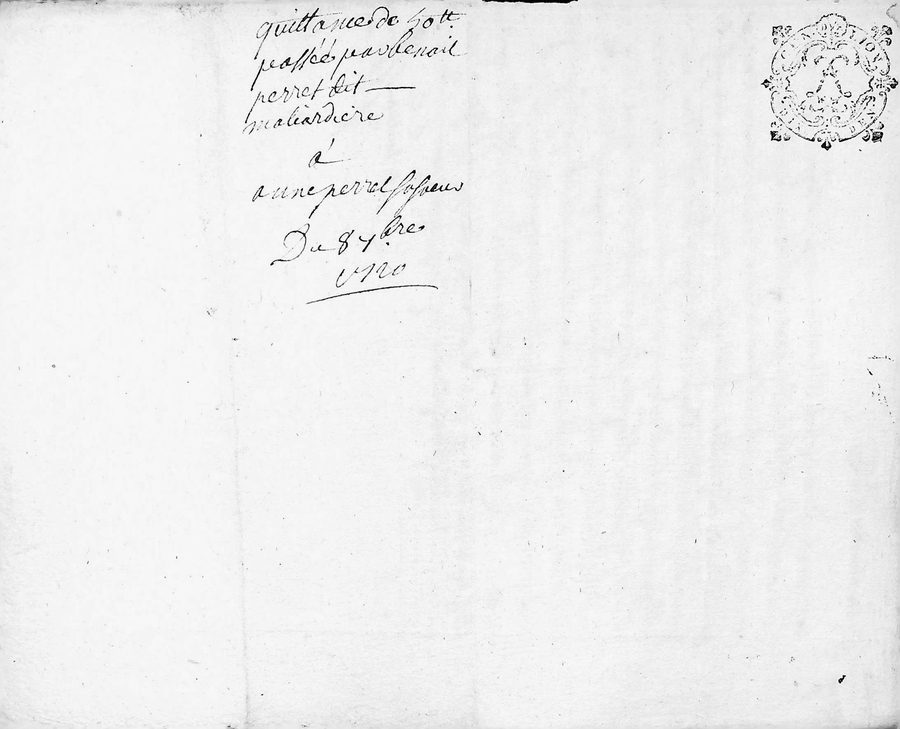 quittance de 50 tt
passée par benoit
perret dit
maliardiere
à
anne perret sa soeur
Du 8 7bre
1720
GEN LION